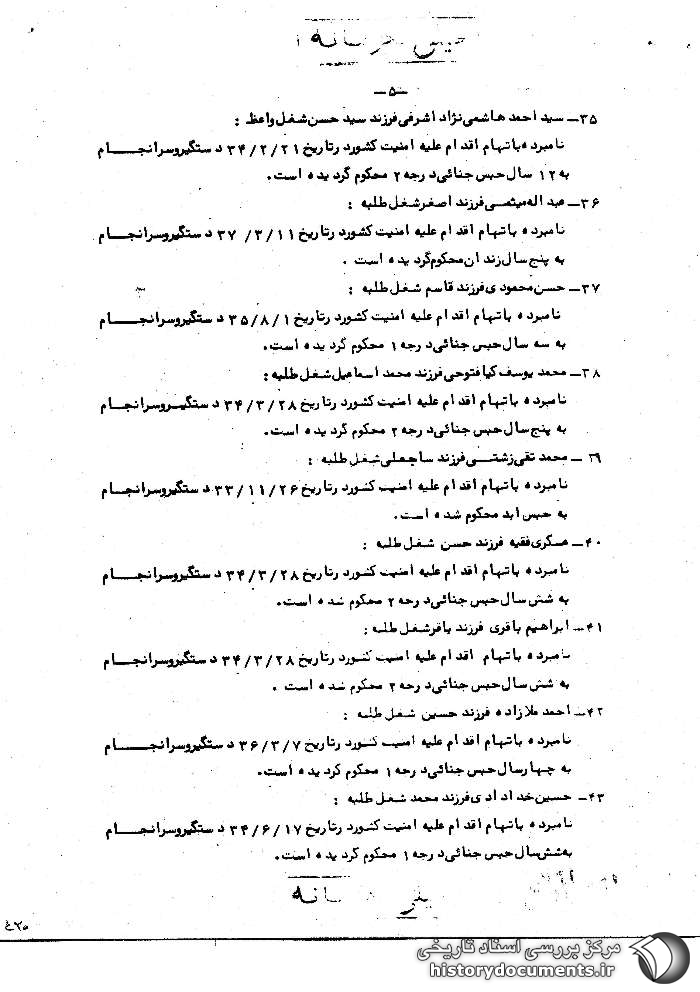 -۵-
۳۵- سید احمد هاشمی نژاد اشرفی فرزند سید حسن شغل واعظ :
نامبرده باتهام اقدام علیه امنیت کشور در تاریخ ۳۴/۲/۲۱ دستگیر و سرانجام
به ۱۲ سال حبس جنائی درجه ۲ محکوم گردیده است.
۳۶- عبداله میثمی فرزند اصغر شغل طلبه :
نامبرده باتهام اقدام علیه امنیت کشور در تاریخ ۳۷/۳/۱۱ دستگیر و سرانجام
به پنج سال زندان محکوم گردیده است .
۳۷- حسن محمودی فرزند قاسم شغل طلبه :
نامبرده باتهام اقدام علیه امنیت کشور در تاریخ ۳۵/۸/۱ دستگیر و سرانجام
به سه سال حبس جنائی درجه ۱ محکوم گردیده است.
۳۸- محمد یوسف کیافتوحی فرزند محمد اسماعیل شغل طلبه :
نامبرده باتهام اقدام علیه امنیت کشور در تاریخ ۳۴/۳/۲۸ دستگیر و سرانجام
به پنج سال حبس جنائی درجه ۲ محکوم گردیده است.
۳۹- محمد تقی زشتی فرزند ساجعلی شغل طلبه :
نامبرده باتهام اقدام علیه امنیت کشور در تاریخ ۳۳/۱۱/۲۶ دستگیر و سرانجام
به حبس ابد محکوم شده است.
۴۰- عسکری فقیه فرزند حسن شغل طلبه :
نامبرده باتهام اقدام علیه امنیت کشور در تاریخ ۳۴/۳/۲۸ دستگیر و سرانجام
به شش سال حبس جنائی درجه ۲ محکوم شده است.
۴۱- ابراهیم باقری فرزند باقر شغل طلبه :
نامبرده باتهام اقدام علیه امنیت کشور در تاریخ ۳۴/۳/۲۸ دستگیر و سرانجام
به شش سال حبس جنائی درجه ۲ محکوم شده است .
۴۲- احمد ملازاده فرزند حسین شغل طلبه :
نامبرده باتهام اقدام علیه امنیت کشور در تاریخ ۳۶/۳/۷ دستگیر و سرانجام
به چهار سال حبس جنائی درجه ۱ محکوم گردیده است.
۴۳- حسین خدادادی فرزند محمد شغل طلبه :
نامبرده باتهام اقدام علیه امنیت کشور در تاریخ ۳۴/۶/۱۷ دستگیر و سرانجام
به شش سال حبس جنائی درجه ۱ محکوم گردیده است.
مرکز بررسی اسناد تاریخی
historydocuments.ir